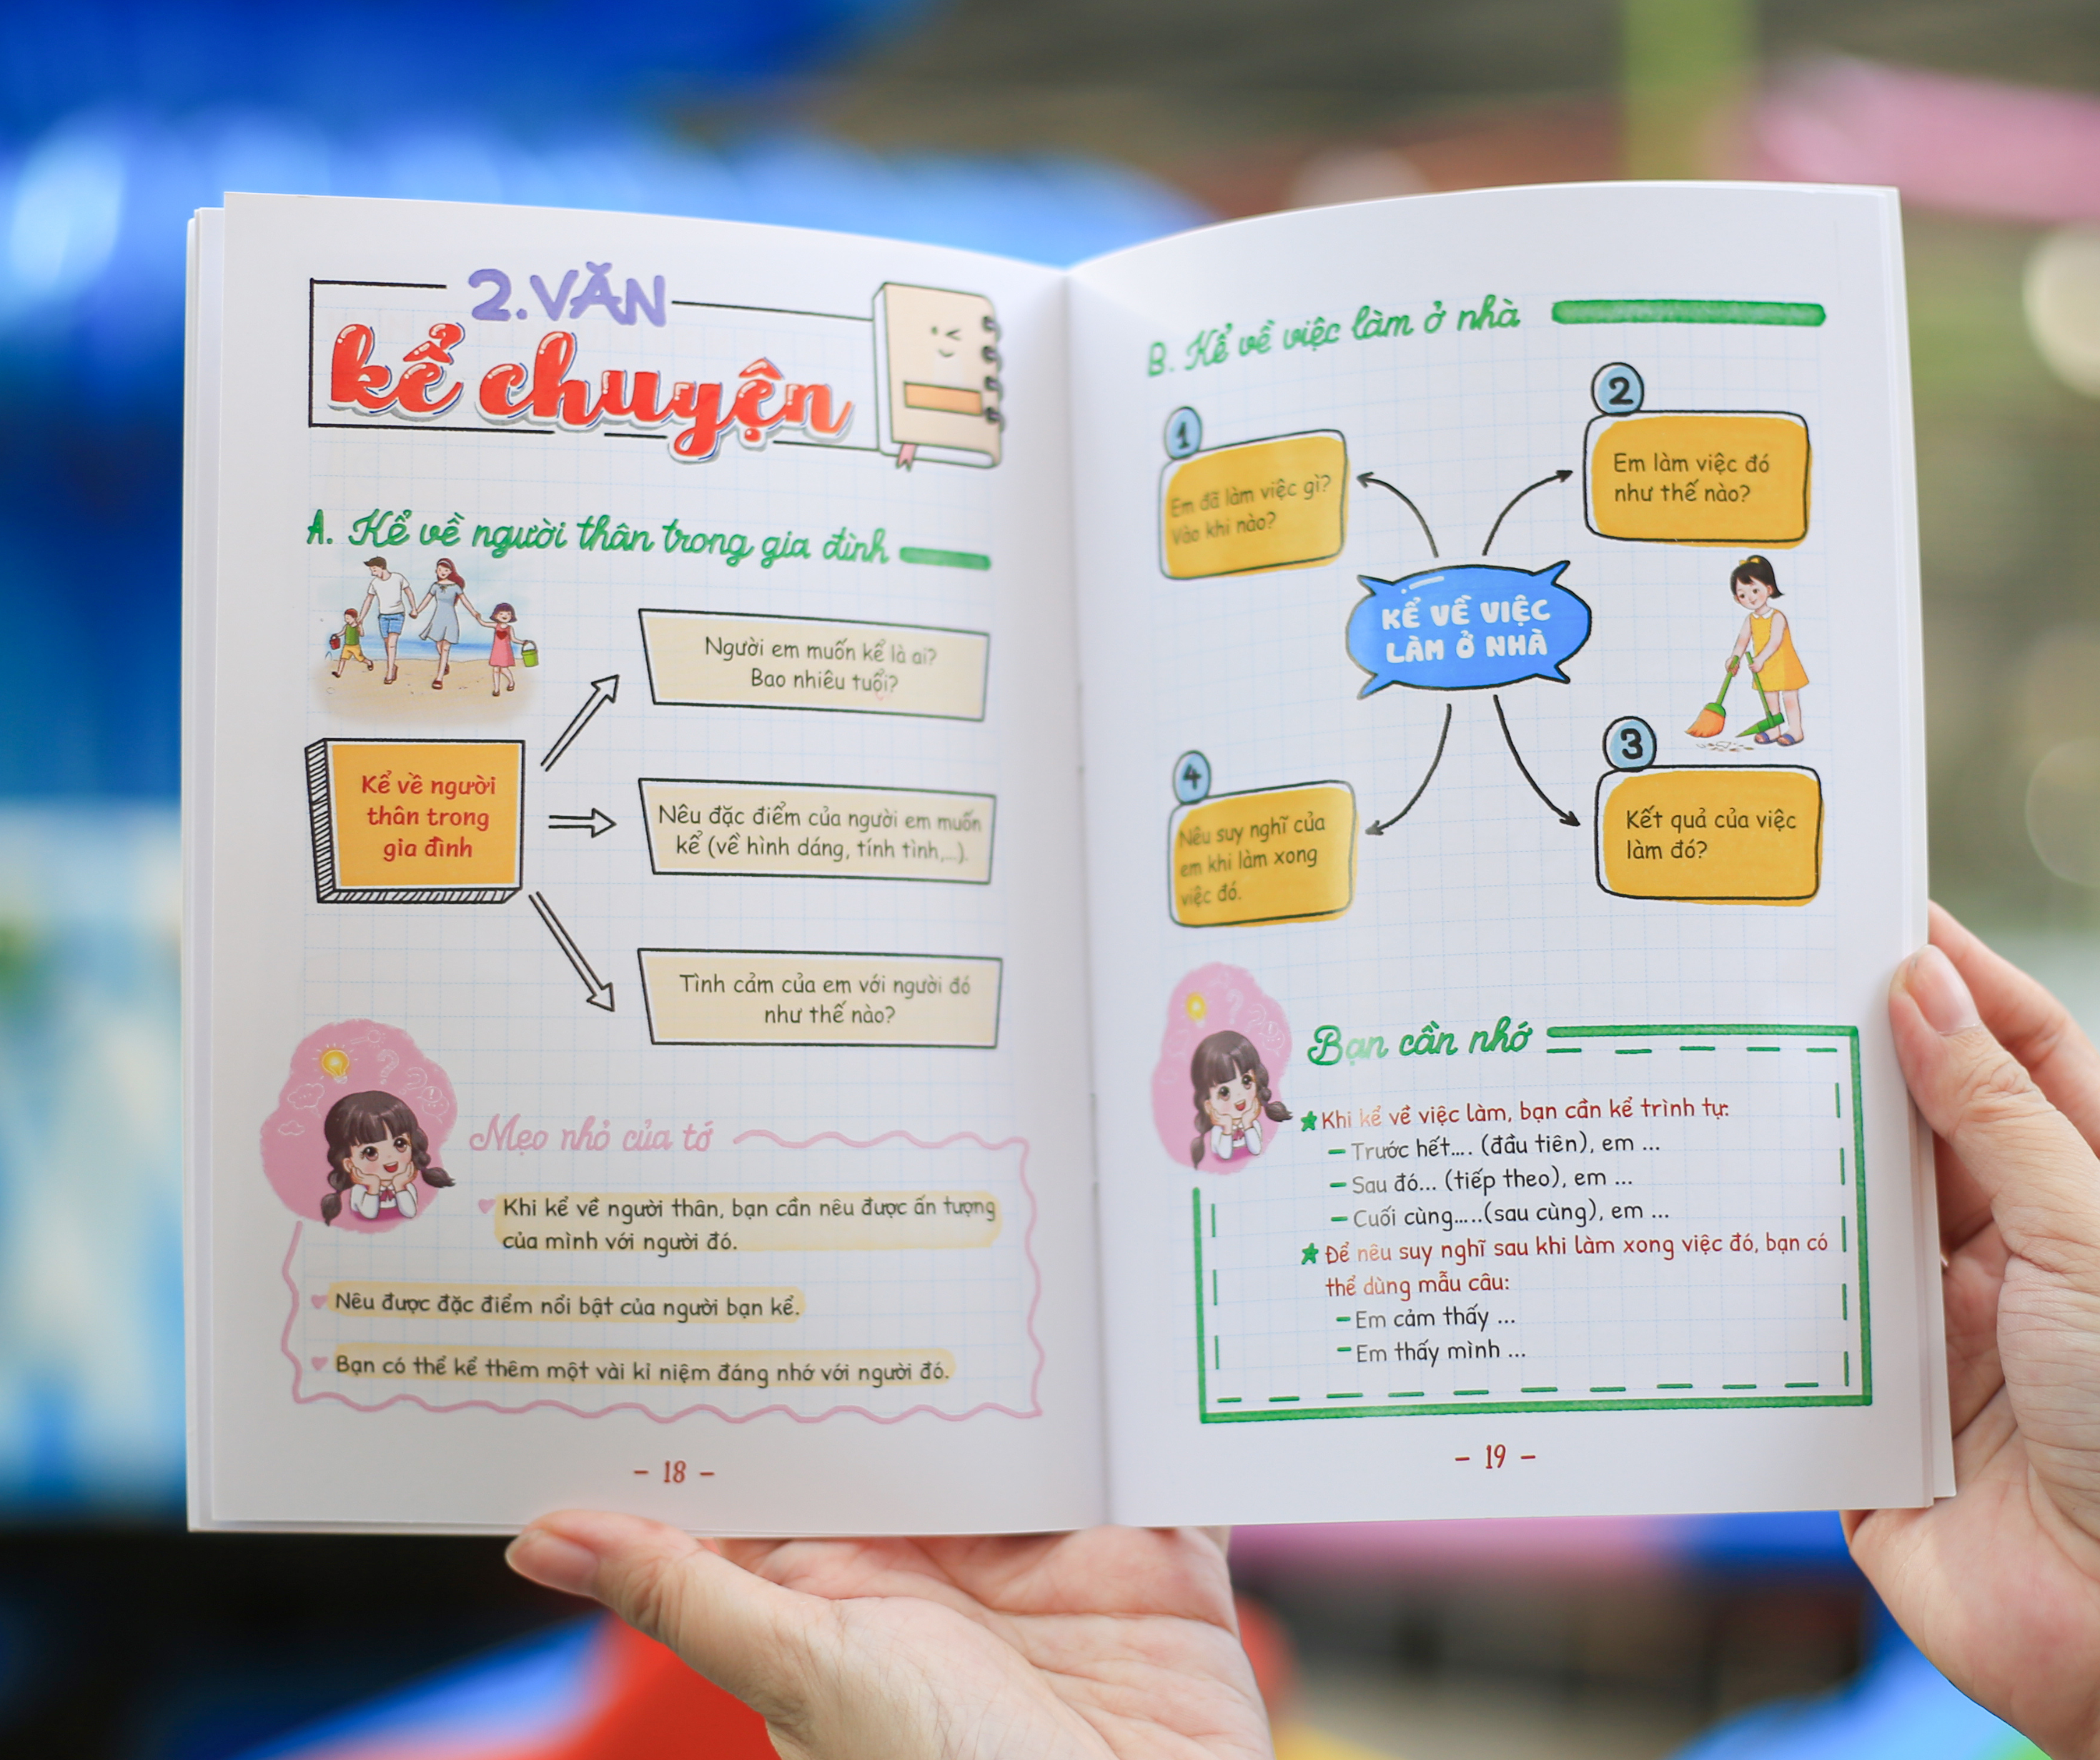 2. VĂN
kể chuyện
A. Kể về người thân trong gia đình
Kể về người
thân trong
gia đình
Người em muốn kể là ai?
Bao nhiêu tuổi?
Nêu đặc điểm của người em muốn
kể (về hình dáng, tính tình,...).
Tình cảm của em với người đó
như thế nào?
Mẹo nhỏ của tớ
Khi kể về người thân, bạn cần nêu được ấn tượng
của mình với người đó.
Nêu được đặc điểm nổi bật của người bạn kể.
Bạn có thể kể thêm một vài kỉ niệm đáng nhớ với người đó.
- 18 -
B. Kể về việc làm ở nhà
1
Em đã làm việc gì?
Vào khi nào?
2
Em làm việc đó
như thế nào?
KỂ VỀ VIỆC
LÀM Ở NHÀ
3
Kết quả của việc
làm đó?
4
Nêu suy nghĩ của
em khi làm xong
việc đó.
Bạn cần nhớ
Khi kể về việc làm, bạn cần kể trình tự:
- Trước hết.... (đầu tiên), em ...
- Sau đó... (tiếp theo), em ...
- Cuối cùng.....(sau cùng), em ...
Để nêu suy nghĩ sau khi làm xong việc đó, bạn có
thể dùng mẫu câu:
- Em cảm thấy ...
- Em thấy mình ...
- 19 -